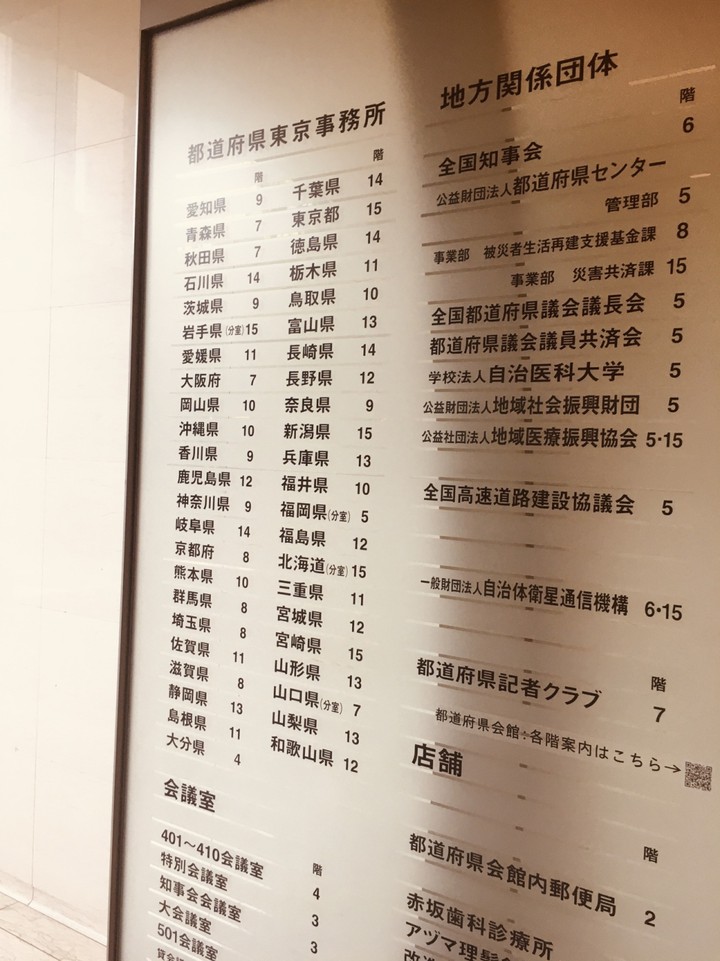 都道府県東京事務所
階
愛知県 9
青森県 7
秋田県 7
石川県 14
茨城県 9
岩手県(分室) 15
愛媛県 11
大阪府 7
岡山県 10
沖縄県 10
香川県 9
鹿児島県 12
神奈川県 9
岐阜県 14
京都府 8
熊本県 10
群馬県 8
埼玉県 8
佐賀県 11
滋賀県 8
静岡県 13
島根県 11
大分県 4
階
千葉県 14
東京都 15
徳島県 14
栃木県 11
鳥取県 10
富山県 13
長崎県 14
長野県 12
奈良県 9
新潟県 15
兵庫県 13
福井県 10
福岡県(分室) 5
福島県 12
北海道(分室) 15
三重県 11
宮城県 12
宮崎県 15
山形県 13
山口県(分室) 7
山梨県 13
和歌山県 12
会議室
階
401〜410会議室 4
特別会議室 3
知事会会議室 3
大会議室
501会議室
地方関係団体
階
全国知事会 6
公益財団法人都道府県センター
管理部 5
事業部 被災者生活再建支援基金課 8
事業部 災害共済課 15
全国都道府県議会議長会 5
都道府県議会議員共済会 5
学校法人自治医科大学 5
公益財団法人地域社会振興財団 5
公益社団法人地域医療振興協会 5・15
全国高速道路建設協議会 5
一般財団法人自治体衛星通信機構 6・15
階
都道府県記者クラブ 7
都道府県会館:各階案内はこちら→
店舗
階
都道府県会館内郵便局 2
赤坂歯科診療所
アヅマ理髪